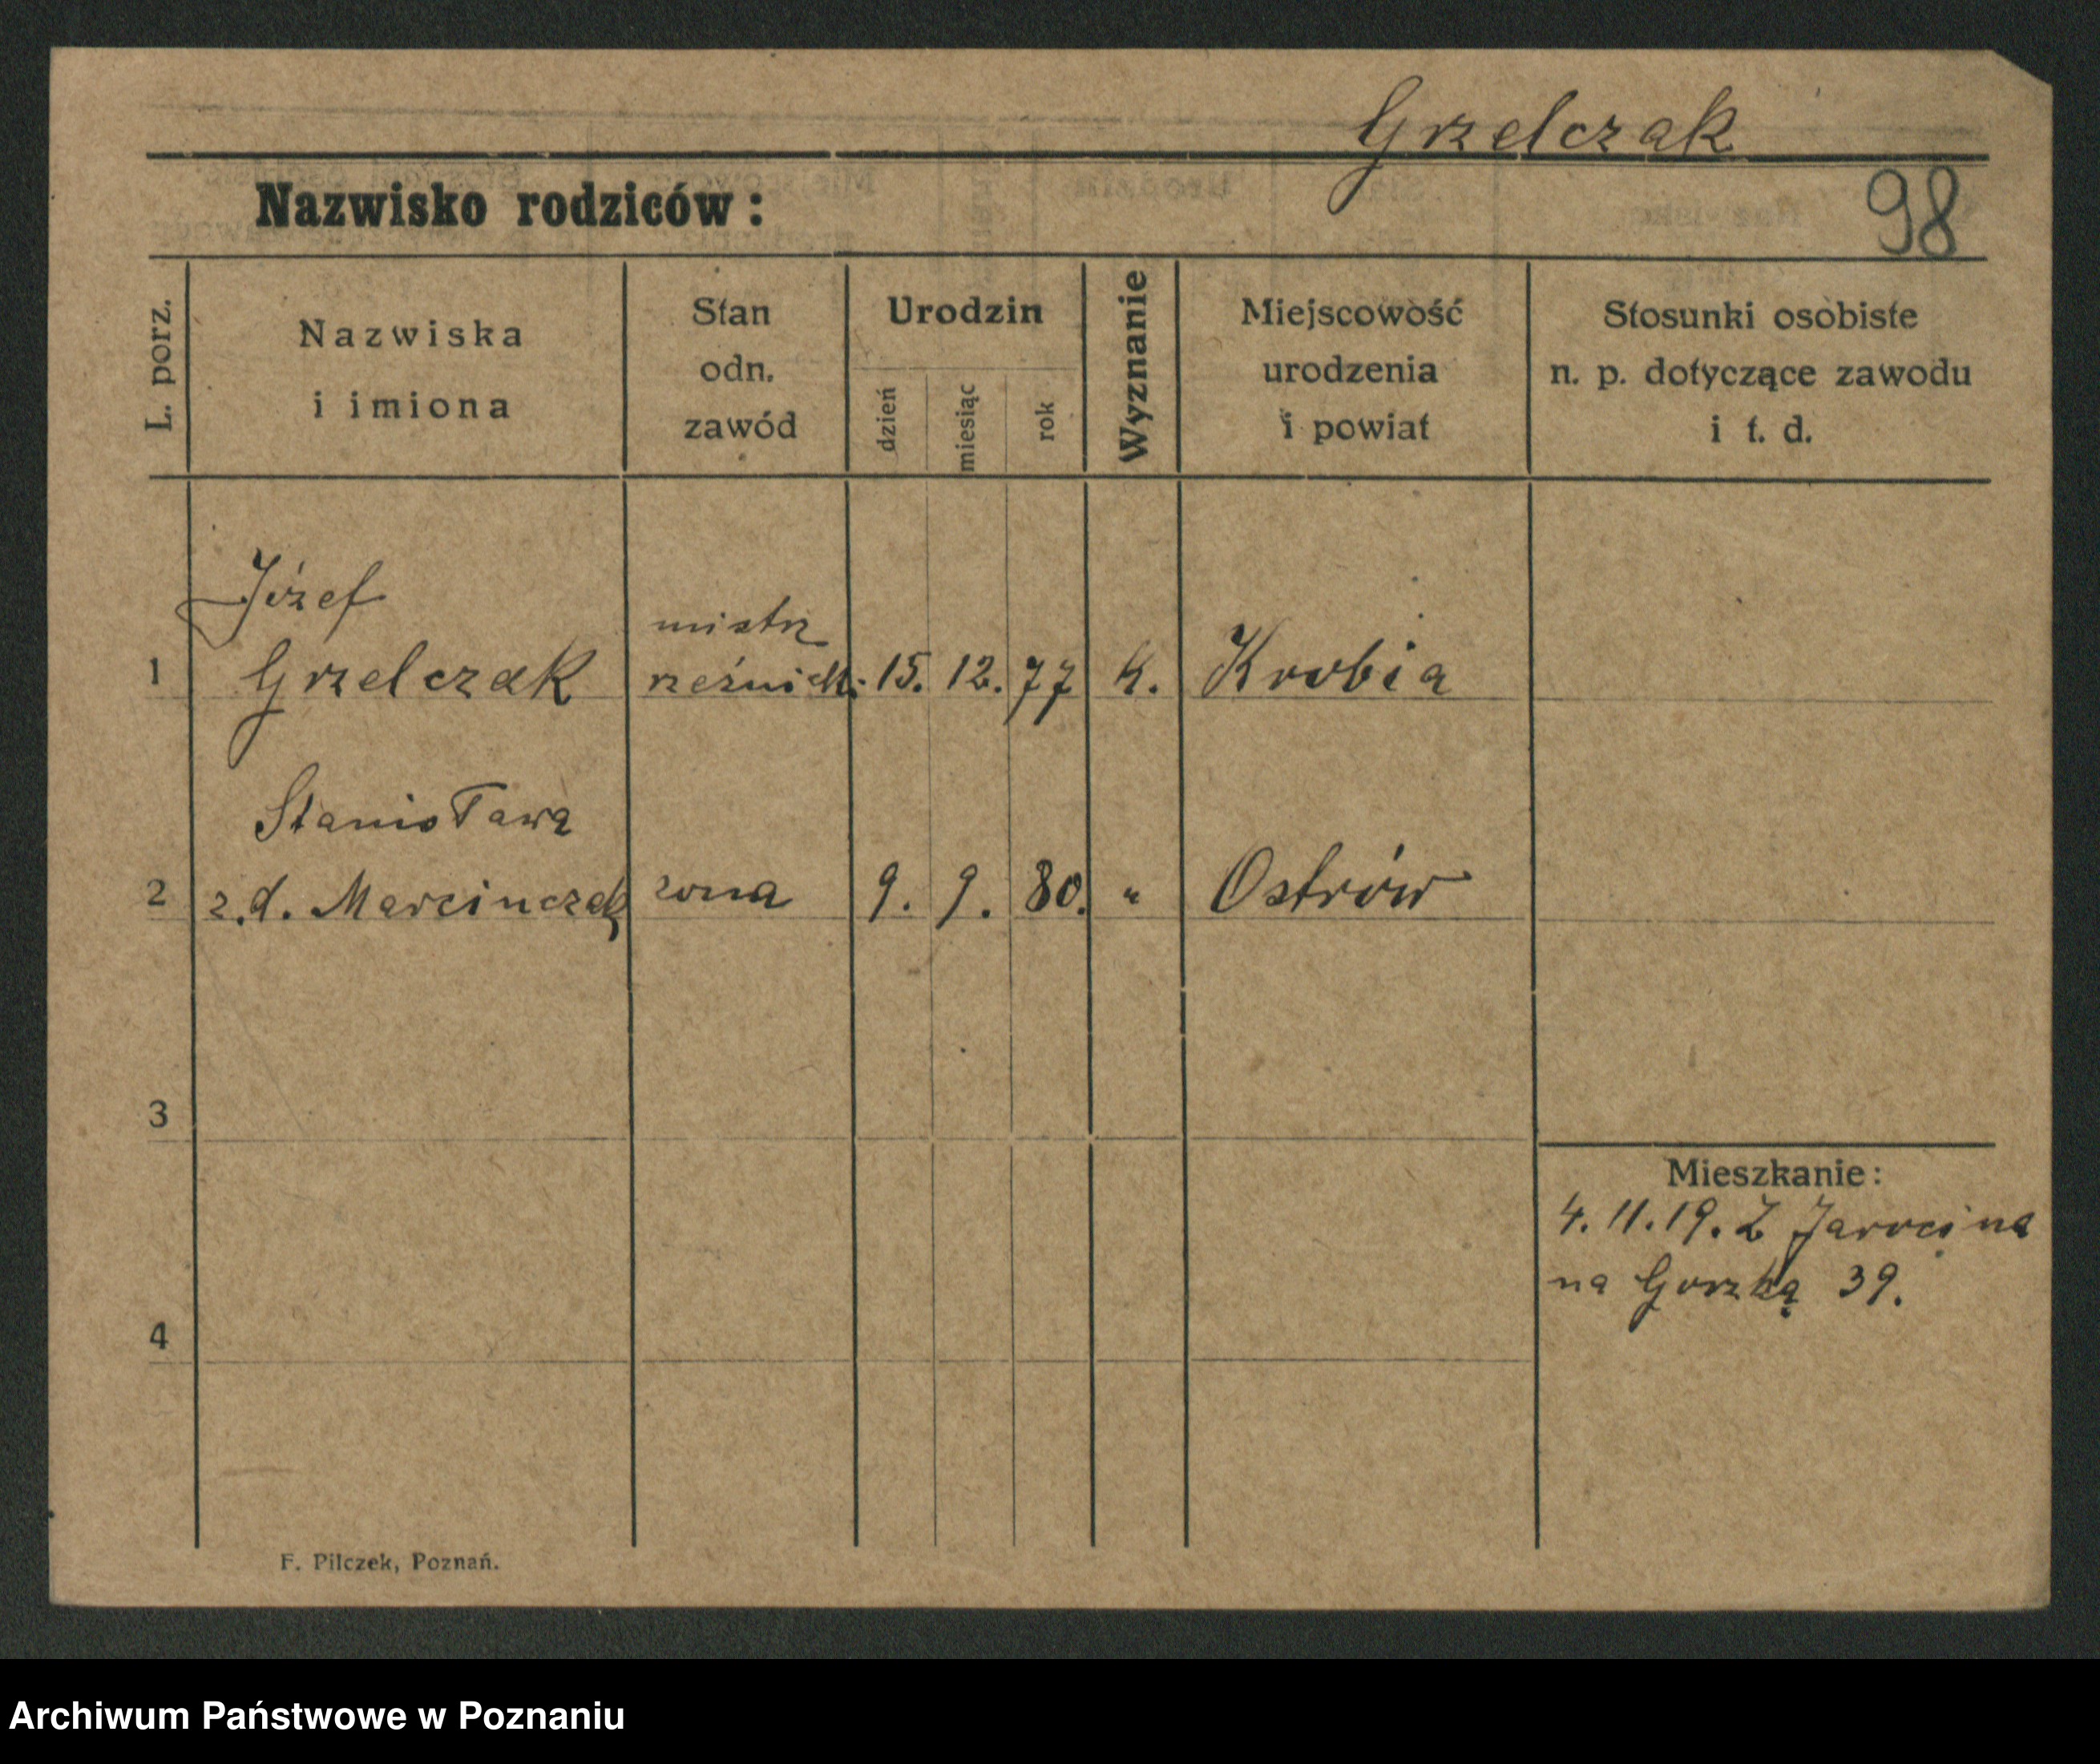 Grzelczak
Nazwisko rodziców:
98
L. porz.
Nazwiska
i imiona
Stan
odn.
zawód
Urodzin
dzień
miesiąc
rok
Wyznanie
Miejscowość
urodzenia
i powiat
Stosunki osobiste
n. p. dotyczące zawodu
i t. d.
Józef
mistrz
1 Grzelczak rzeźnick. 15. 12. 77 k. Krobia
Stanisława
2 z.d. Marcinczak żona 9. 9. 80. " Ostrów
3
Mieszkanie:
4.11.19. Z Jarocina
na Gorzką 39.
4
F. Pilczek, Poznań.
Archiwum Państwowe w Poznaniu